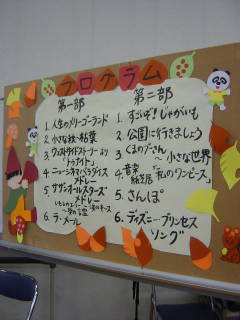 プログラム
第一部
1. 人生のメリーゴーランド
2. 小さな桧・枯葉
3. ウェストサイドストーリーより
「トゥナイト」
4. ニューシネマパラダイス
メドレー
5. サザンオールスターズ
メドレー
6. ラ・メール
第二部
1. すごいぞ!じゃがいも
2. 公園に行きましょう
3. くまのプーさん
～小さな世界
4. 音楽
紙芝居「私のワンピース」
5. さんぽ
6. ディズニープリンセス
ソング